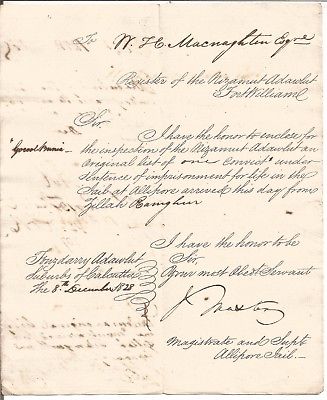 To
W. H. Macnaghten Esqre
Register of the Nizamut Adawlut
Fort William
Sir
I have the honor to enclose for
the inspection of the Nizamut Adawlut an
original list of one convict under
sentence of imprisonment for life in the
Jail at Allipore arrived this day from
Zillah Ramghur
I have the honor to be
Sir,
Your most Obedt Servant
Magistrate and Supt
Allipore Jail.
Fouzdarry Adawlut
Suburbs of Calcutta
The 8th December 1828